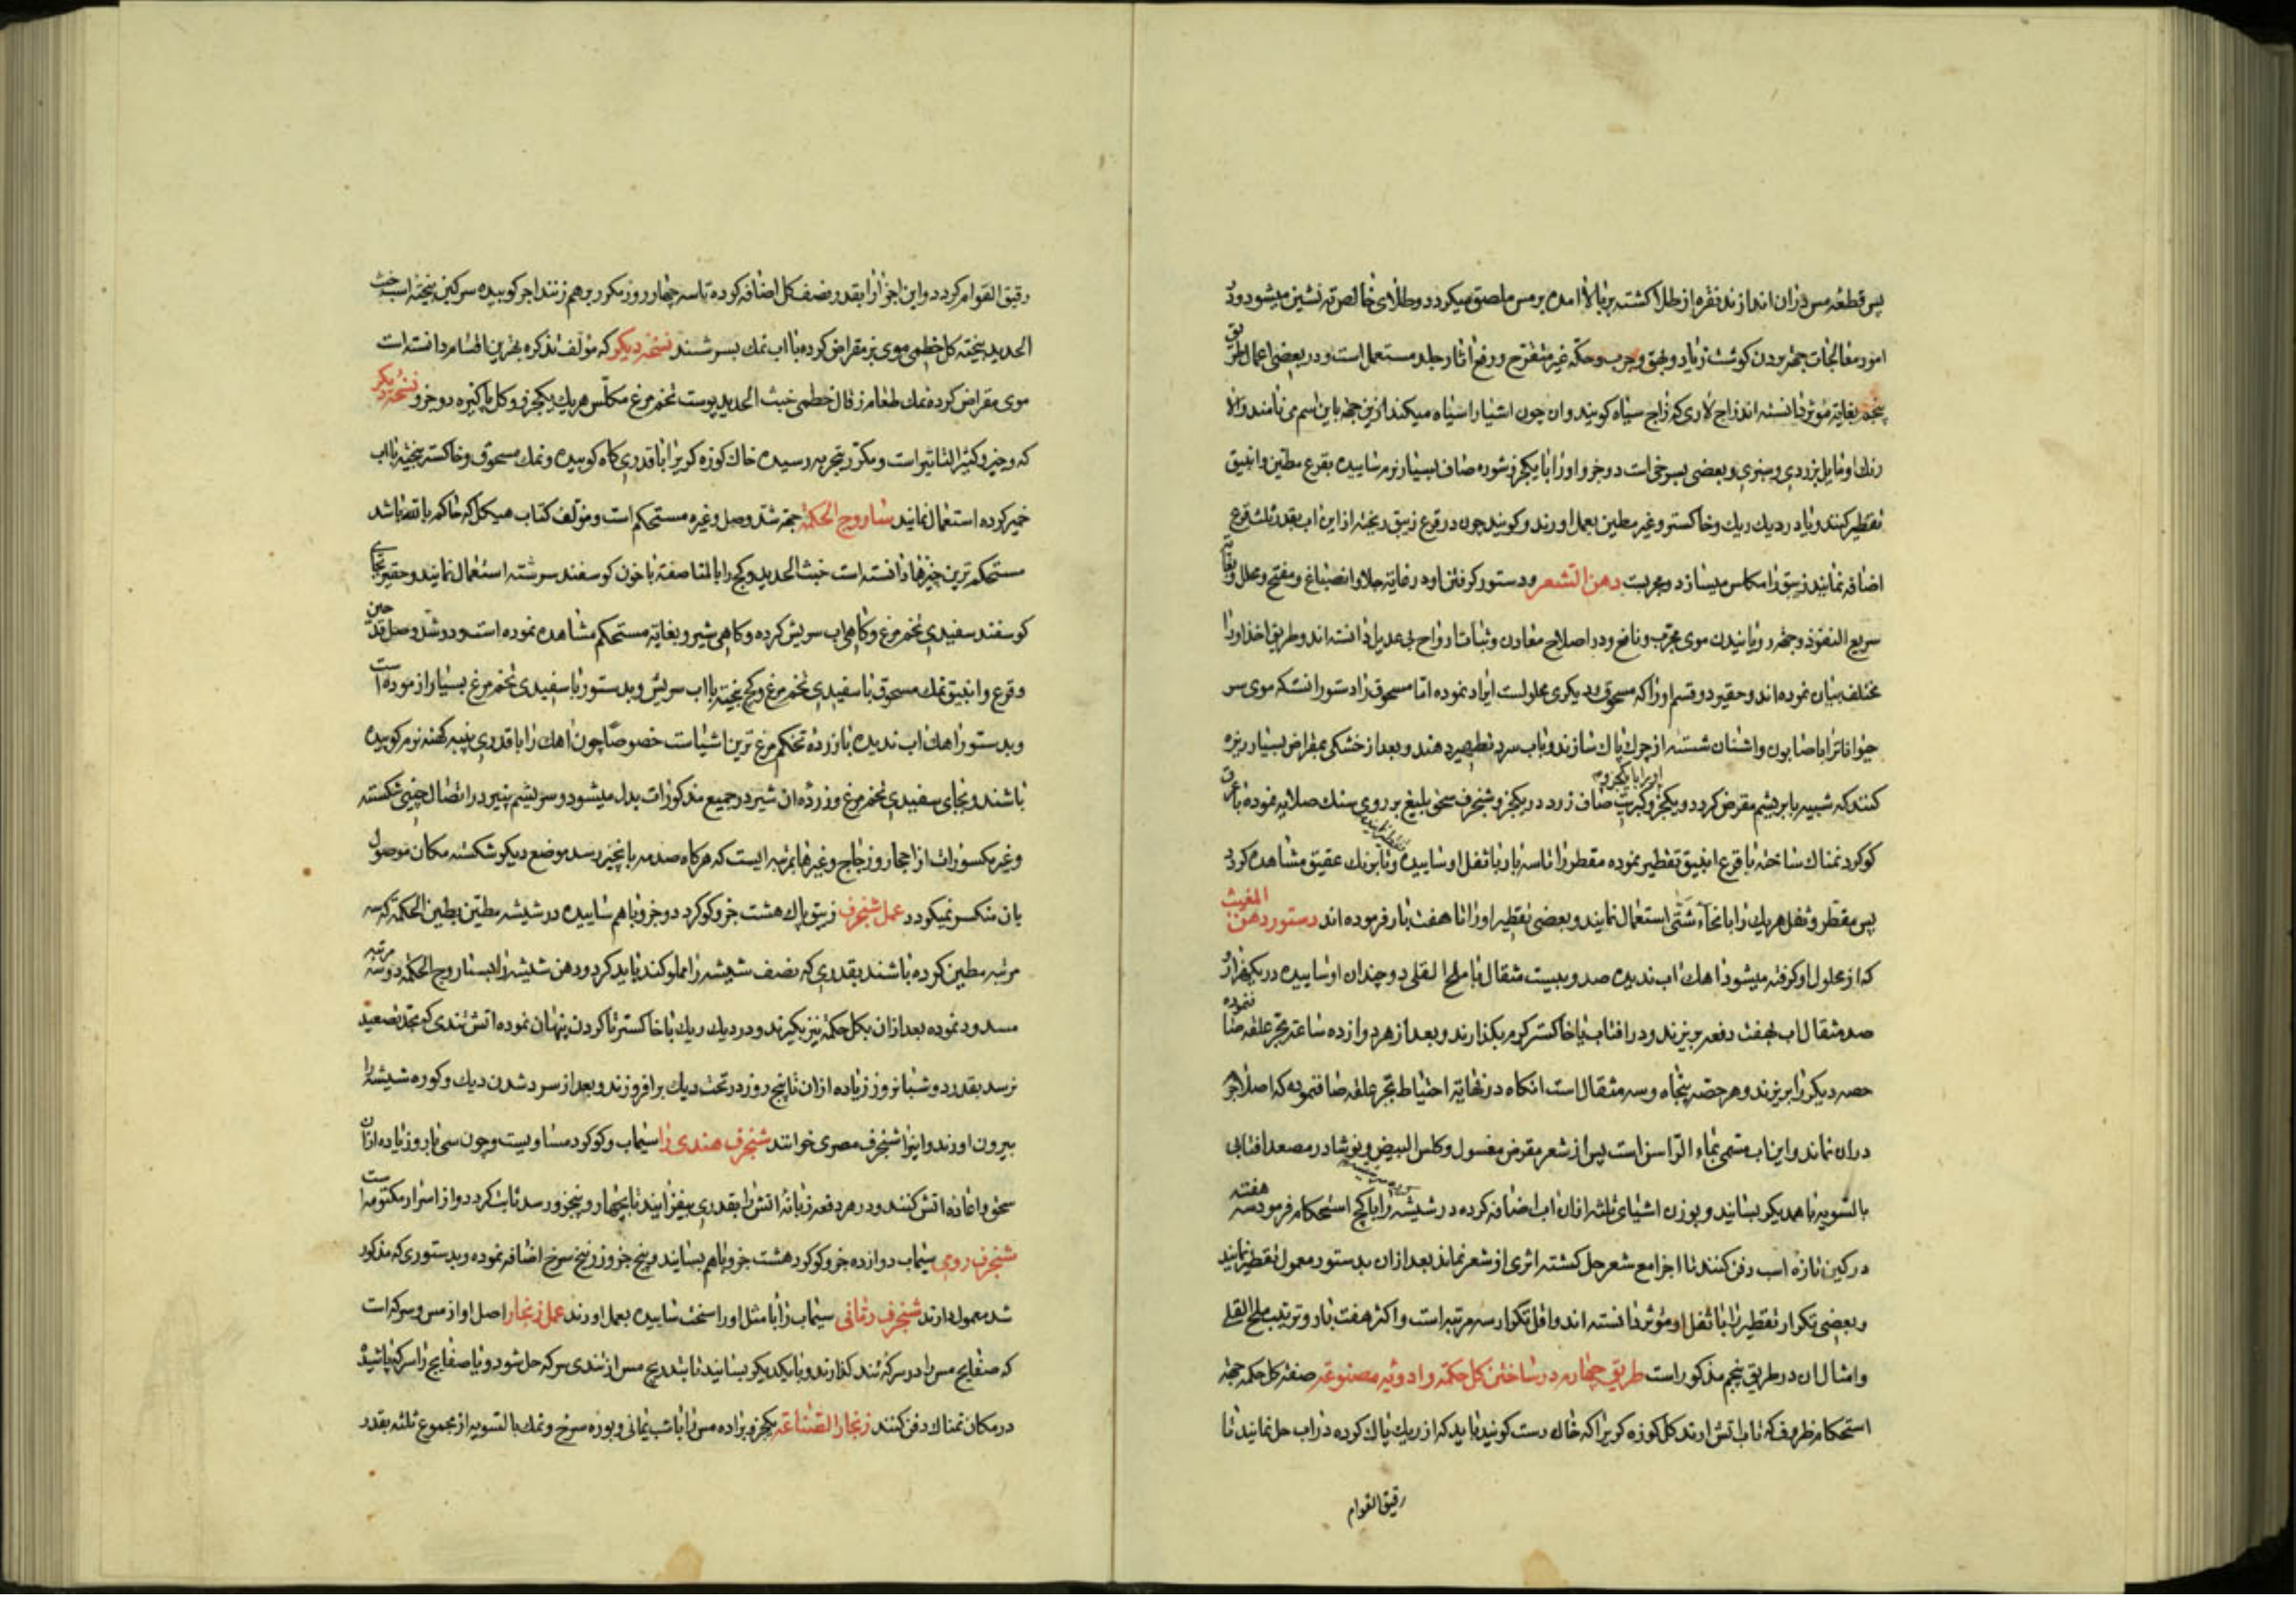 پس قطعه مس دران اندازند نقره از طلا کشته بر بالا امده بر مس ملصق میکردد و طلای خالص ته نشین میشود و در
امور معالجات جهة بردن کوشت زیاد و بهق و جرب و حکه غیر متقرح و رفع اثار جلد مستعمل است و در بعضی اعمال طریق
پنجم بغایة موثر دانسته اند زاج لاری که زاج سیاه کویند و ان چون اشیا را سیاه میکند ازین جهة باین اسم می نامند والا
رنك او مایل بزردی و سبزی و بعضی بسرخی است دو جزو او را با یکجزو شوره صاف بسیار نرم سائیده بقرع مطین و انبیق
تقطیر کنند و باد در دیك ریك و خاکستر و غیر مطین بعمل اورند و کویند چون در قرع زیبق ریخته از این اب بقدر ثلث قرع
اضافه نمایند زیبق را مکلس میسازد و مجربست دهن الشعر و دستور کرفتن او در غایة جلا و انصباغ و مفتح و محلل و بغایة
سریع النفوذ و جهة رویانیدن موی مجرب و نافع و در اصلاح معادن و ثبات ارواح بی عدیل دانسته اند و طریق اخذ او را
مختلف بیان نموده اند و حقیر دو قسم او را که مسحوق و دیکری محلولست ایراد نموده اما مسحوق را دستور انست که موی سر
جوانانرا با صابون و اشنان شسته از چرك پاك سازند و باب سرد تطهیر دهند و بعد از خشکی بمقراض بسیار ریزه
کنند که شبیه بابریشم مقرض کردد و یکجزو کبریت صاف زرد در یکجزو شنجرف سحق بلیغ بر روی سنك صلایه نموده با عرق
او را با یکجزو
کوکرد نمناك ساخته با قرع انبیق تقطیر نموده مقطر را تا سه بار با ثفل او سائیده تا برنك عقیق مشاهده کردد
پس مقطر و ثفل هریك را بانحاء شتی استعمال نمایند و بعضی تقطیر او را تا هفت بار فرموده اند دستور دهن المغیث
که از محلول او کرفته میشود اهك اب ندیده صد و بیست مثقال با ملح القلی دو چندان او سائیده در یکهزار و
صد مثقال اب بهفت دفعه بریزند و در افتاب یا خاکستر کرم بکذارند و بعد از هر دوازده ساعة بجر علقه صاف نموده
حصه دیکر را بریزند و هر حصه پنجاه و سه مثقال است انکاه در نهایة احتیاط بجر علقه صاف نموده که اصلا جرم
دران نماند و این اب مسمی بماء الراسن است پس از شعر مقرض مغسول و کلس البیض و نوشادر مصعد افتابی
بالسویه با همدیکر بسایند و بوزن اشیای ثلثه ازان اب اضافه کرده در شیشه را با کچ استحکام فرموده سه هفته
در کین تازه اسب دفن کنند تا اجزا مع شعر حل کشته اثری از شعر نماند بعد ازان بدستور معمول تقطیر نمایند
و بعضی تکرار تقطیر را با ثفل او موثر دانسته اند و اقل تکرار سه مرتبه است و اکثر هفت بار و ترتیب ملح القلی
و امثال ان در طریق پنجم مذکور است طریق چهارم در ساختن کل حکمة و ادویه مصنوعه صفة کل حکمة جهة
استحکام ظروف که تاب اتش ارند کل کوزه کریرا که خاك رست کویند باید که از ریك پاك کرده در اب حل نمایند تا
رقیق القوام
رقیق القوام کردد و این اجزا را بقدر نصف کل اضافه کرده تا سه چهار روز مکرر برهم زنند اجر کوبیده سرکین پیخته اسب خبث
الحدید پیخته کل خطمی موی بز مقراض کرده با اب نمك بسرشند نسخه دیکر که مولف تذکره بهترین اقسام دانسته است
موی مقراض کرده نمك طعام زفال خطمی خبث الحدید پوست تخم مرغ مکلس هریك یکجزو و کل پاکیزه دو جزو نسخه دیکر
که وجیز و کثیر التاثیر است و مکرر بتجربه رسیده خاك کوزه کریرا با قدری کاه کوبیده و نمك مسحوق و خاکستر پیخته با اب
خمیر کرده استعمال نمایند ساروج الحکمة جهة شد وصل و غیره مستحکم است و مولف کتاب هیکل که خاکم یافته باشد
مستحکم ترین چیزها دانسته است خبث الحدید و کچ را بالمناصفه با خون کوسفند سرشته استعمال نمایند و حقیر بجای
خون کوسفند سفیدی تخم مرغ و کاهی اب سریش کرده و کاهی شیر و بغایة مستحکم مشاهده نموده است و در شد وصل قدح
و قرع و انبیق نمك مسحوق با سفیدی تخم مرغ و کچ پخته با اب سریش و بدستور با سفیدی تخم مرغ بسیار ازموده است
و بدستور اهك اب ندیده با زرده تخم مرغ ترین اشیاست خصوصا چون اهك را با قدری پنبه کهنه نرم کوبیده
باشند و بجای سفیدی تخم مرغ و زرده ان شیر در جمیع مذکورات بدل میشود و سریشم پنیر در اتصال چینی شکسته
و غیر مکسورات از احجار و زجاج و غیرها بمرتبه ایست که هرکاه صدمه بانچیز رسد موضع دیکر شکسته مکان موصول
بان منکسر نمیکردد عمل شنجرف زیبق پاك هشت جزو کوکرد دو جزو باهم سائیده در شیشه مطین بطین الحکمة که سه
مرتبه مطین کرده باشند بقدری که نصف شیشه را مملو کند باید کرد و دهن شیشه را بساروج الحکمة دو سه مرتبه
مسدود نموده بعد ازان بکل حکمة نیز بکیرند و در دیك ریك یا خاکستر تا کردن پنهان نموده اتش تندی که بحد تصعید
نرسد بقدر دو شبانروز زیاده ازان تا پنج روز در تحت دیك برافروزند و بعد از سرد شدن دیك و کوره شیشه را
بیرون اورند و اینرا شنجرف مصری خوانند شنجرف هندی را سیماب و کوکرد مساویست و چون سی بار و زیاده ازان
سحق و اعاده اتش کنند و در هر دفعه زبانه اتش را بقدری بیفزایند تا بچهار و پنجزو رسد ثابت کردد و از اسرار مکتومه است
شنجرف رومی سیماب دوازده جزو کوکرد هشت جزو باهم بسایند و پنج جزو زرنیخ سرخ اضافه نموده و بدستوری که مذکور
شد معمول دارند شنجرف رمانی سیماب را با مثل او راسخت سائیده بعمل اورند عمل زنجار اصل او از مس و سرکه است
که صفایح مس را در سرکه تند کذارند و با یکدیکر بسایند تا بتدریج مس از تندی سرکه حل شود و یا صفایح را سرکه پاشیده
در مکان نمناك دفن کنند زنجار الصناعة یکجزو براده مس را با شب یمانی و بوره سرخ و نمك بالسویه از مجموع ثلثه بقدر